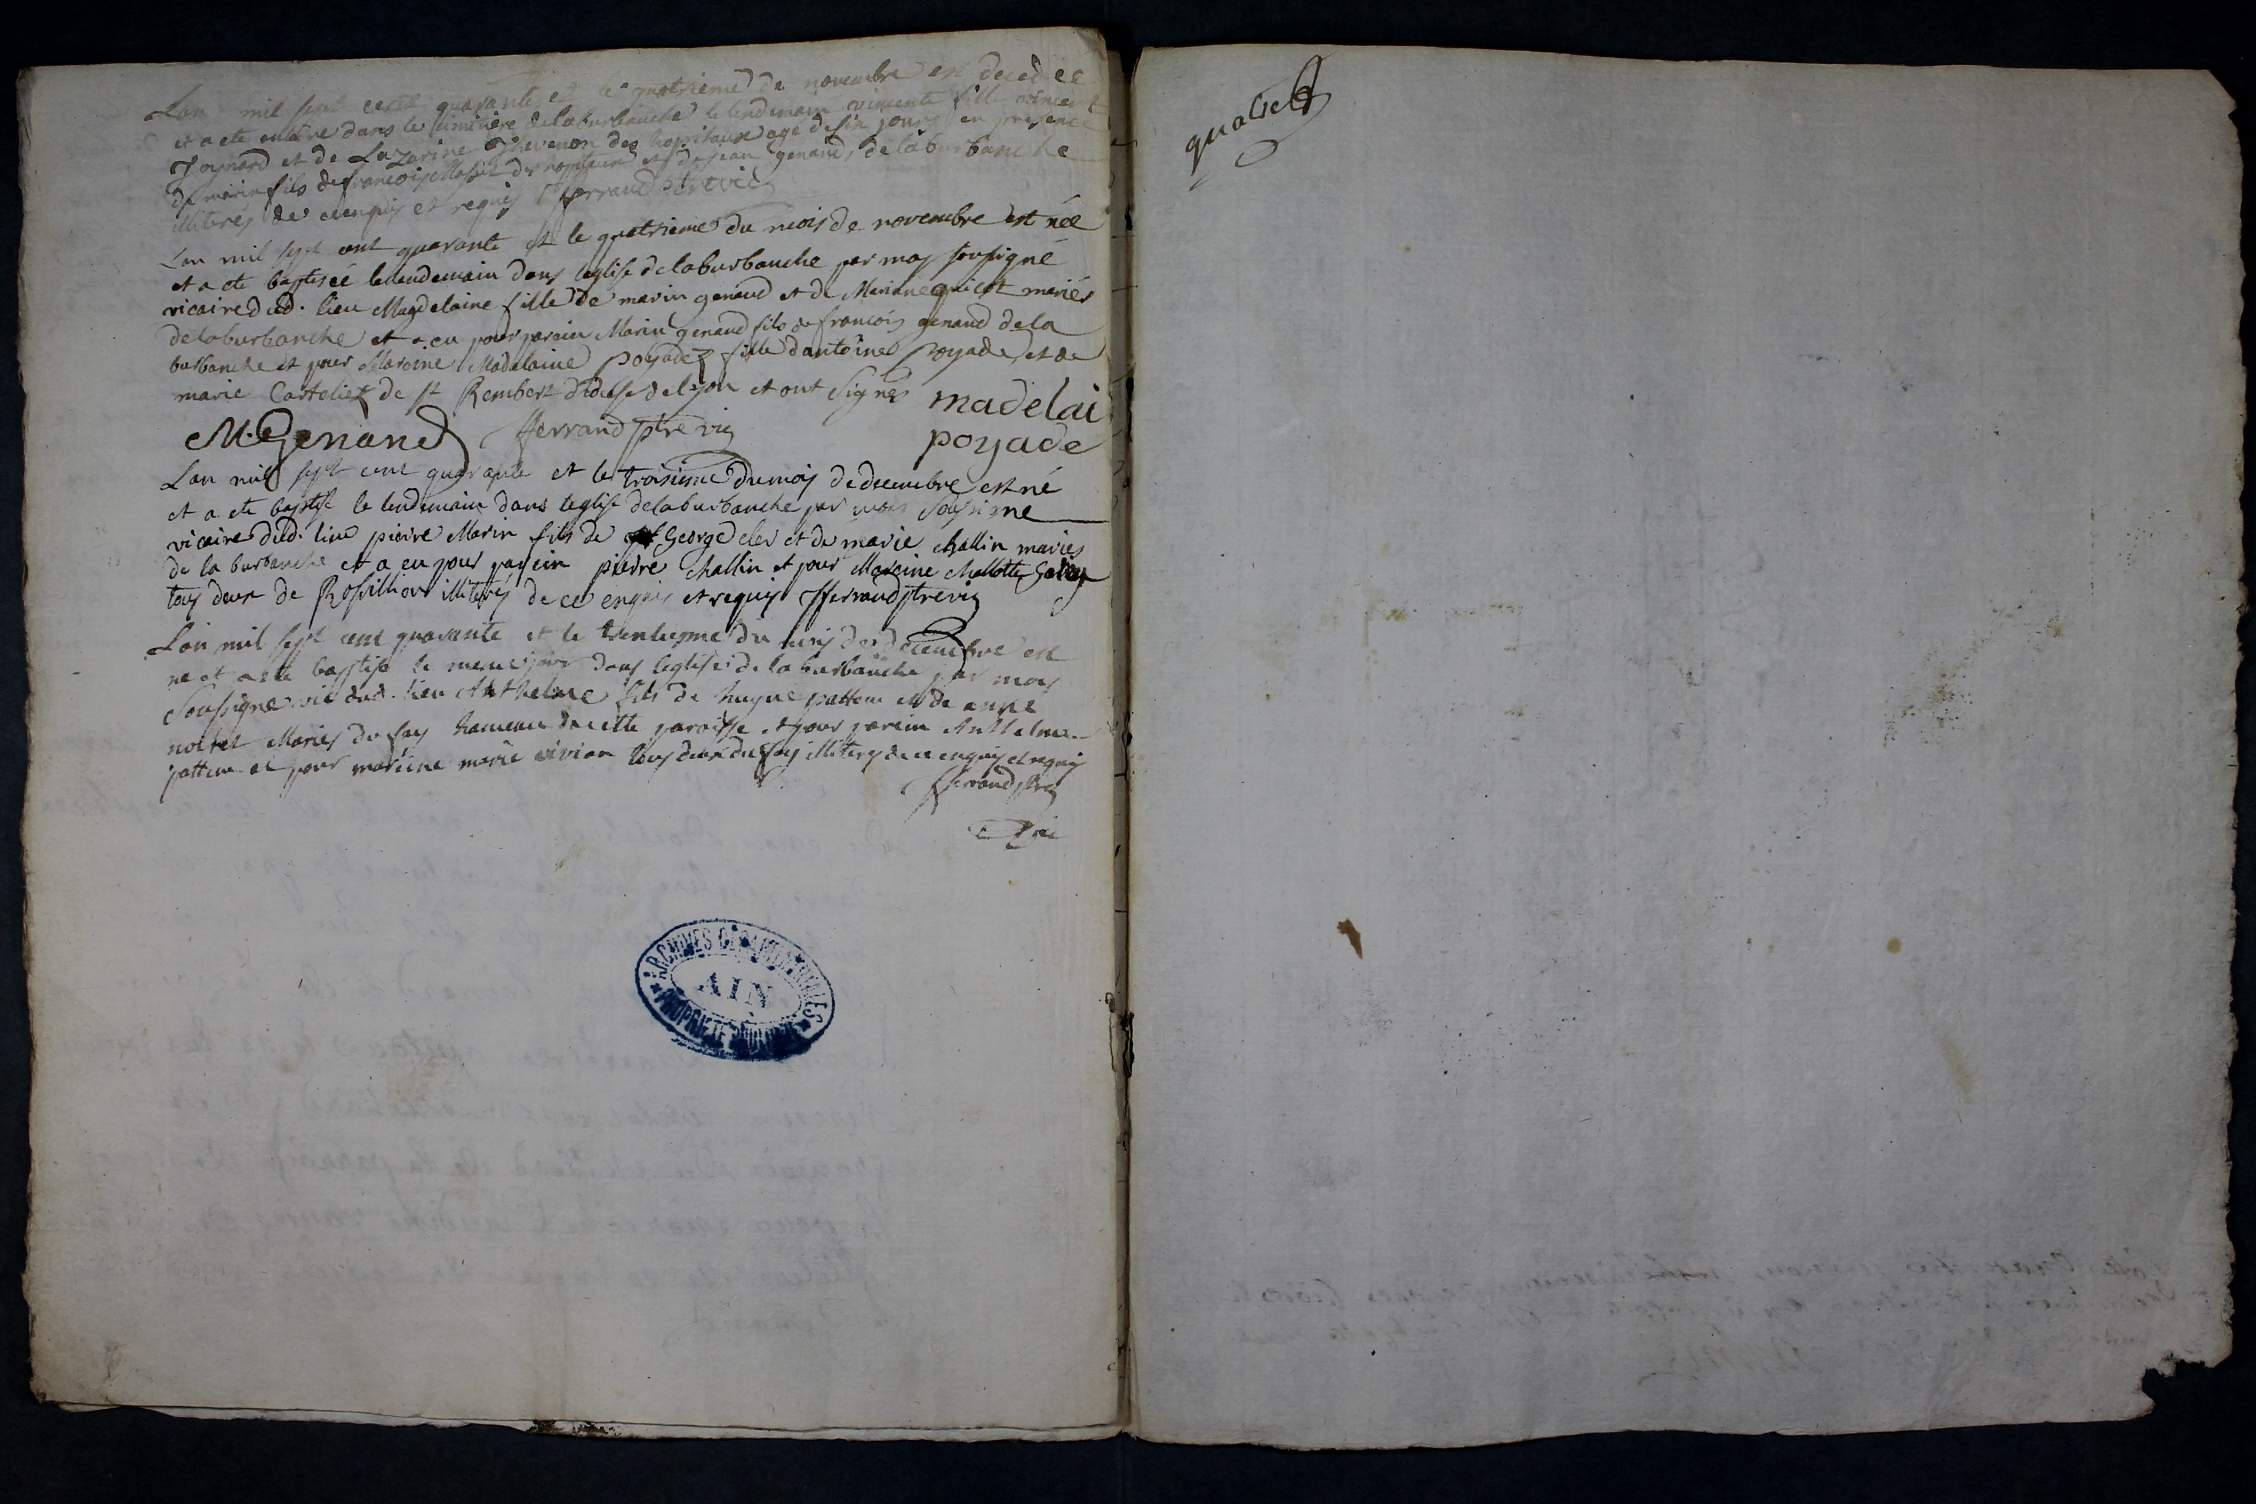 Lan mil sept cent quarante et le quatrieme de novembre est decedee
et a ete entere dans le cimitiere de laburbanche le lendemain vincente fille vincent
Joynard et de Lazarine Thevenon des hopitaux age de six jours en presence
de marin fils de francois des hopitaux et de jean genand de laburbanche
illiteres de ce enquis et requis fferrand ptre vic
Lan mil sept cent quarante et le quatrieme du mois de novembre est née
et a ete baptiseé le lendemain dans leglise de laburbanche par moy soussigné
vicaire dud. lieu Magdelaine fille de marin genand et de Mariane mariés
de laburbanche et a eu pour parein Marin genand fils de francois genand de la
burbanche et pour Mareine Madelaine poyade fille dantoine poyade et de
marie de st Rembert diocese de lyon et ont signés madelai
M. Genand fferrand ptre vic poyade
Lan mil sept cent quarante et le troisieme du mois de decembre est né
et a ete baptise le lendemain dans leglise de laburbanche par mois soussigne
vicaire dud. lieu pierre Marin fils de George cler et de marie challin mariés
de la burbanche et a eu pour parein pierre challin et pour Mareine
tous deux de Rossillion illiterés de ce enquis et requis fferrand ptre vic
Lan mil sept cent quarante et le trentieme du mois de decembre est
ne et a ete baptise le meme jour dans leglise de la burbanche par mois
soussigne vic dud. lieu Anthelme fils de hugue pattou et de anne
mariés du fay hameau de cette paroisse et pour parein Anthelme
pattou et pour mareine marie vivian tous deux du fay illiterés de ce enquis et requis
fferrand ptre
vic
ARCHIVES DÉPARTEMENTALES
AIN
PROPRIÉTÉ PUBLIQUE
quatre